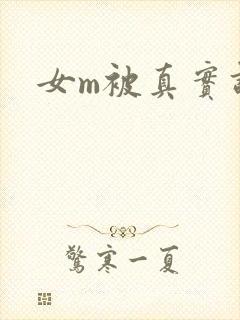 女m被真實
驚寒一夏